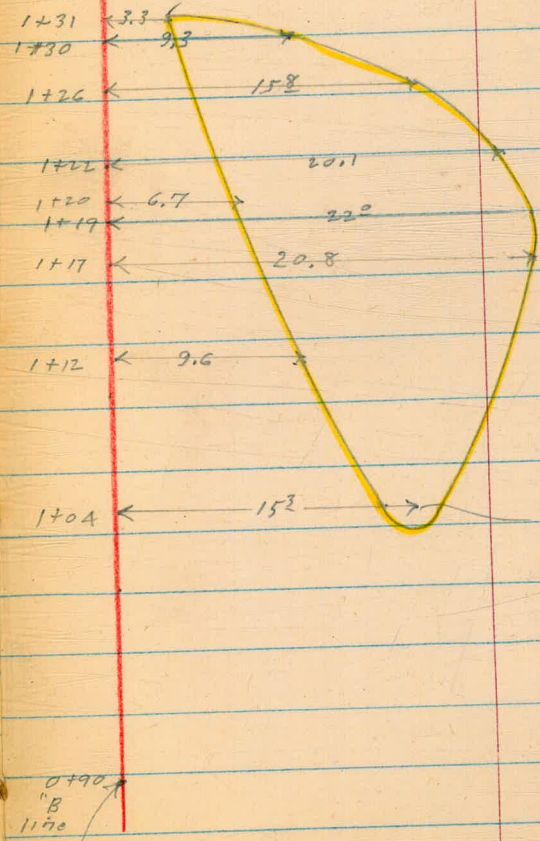 1+31 3.3
1+30 9.3
1+26 15⁸
1+22 20.1
1+20 6.7
1+19 22⁰
1+17 20.8
1+12 9.6
1+04 15³
0+90
"B
line